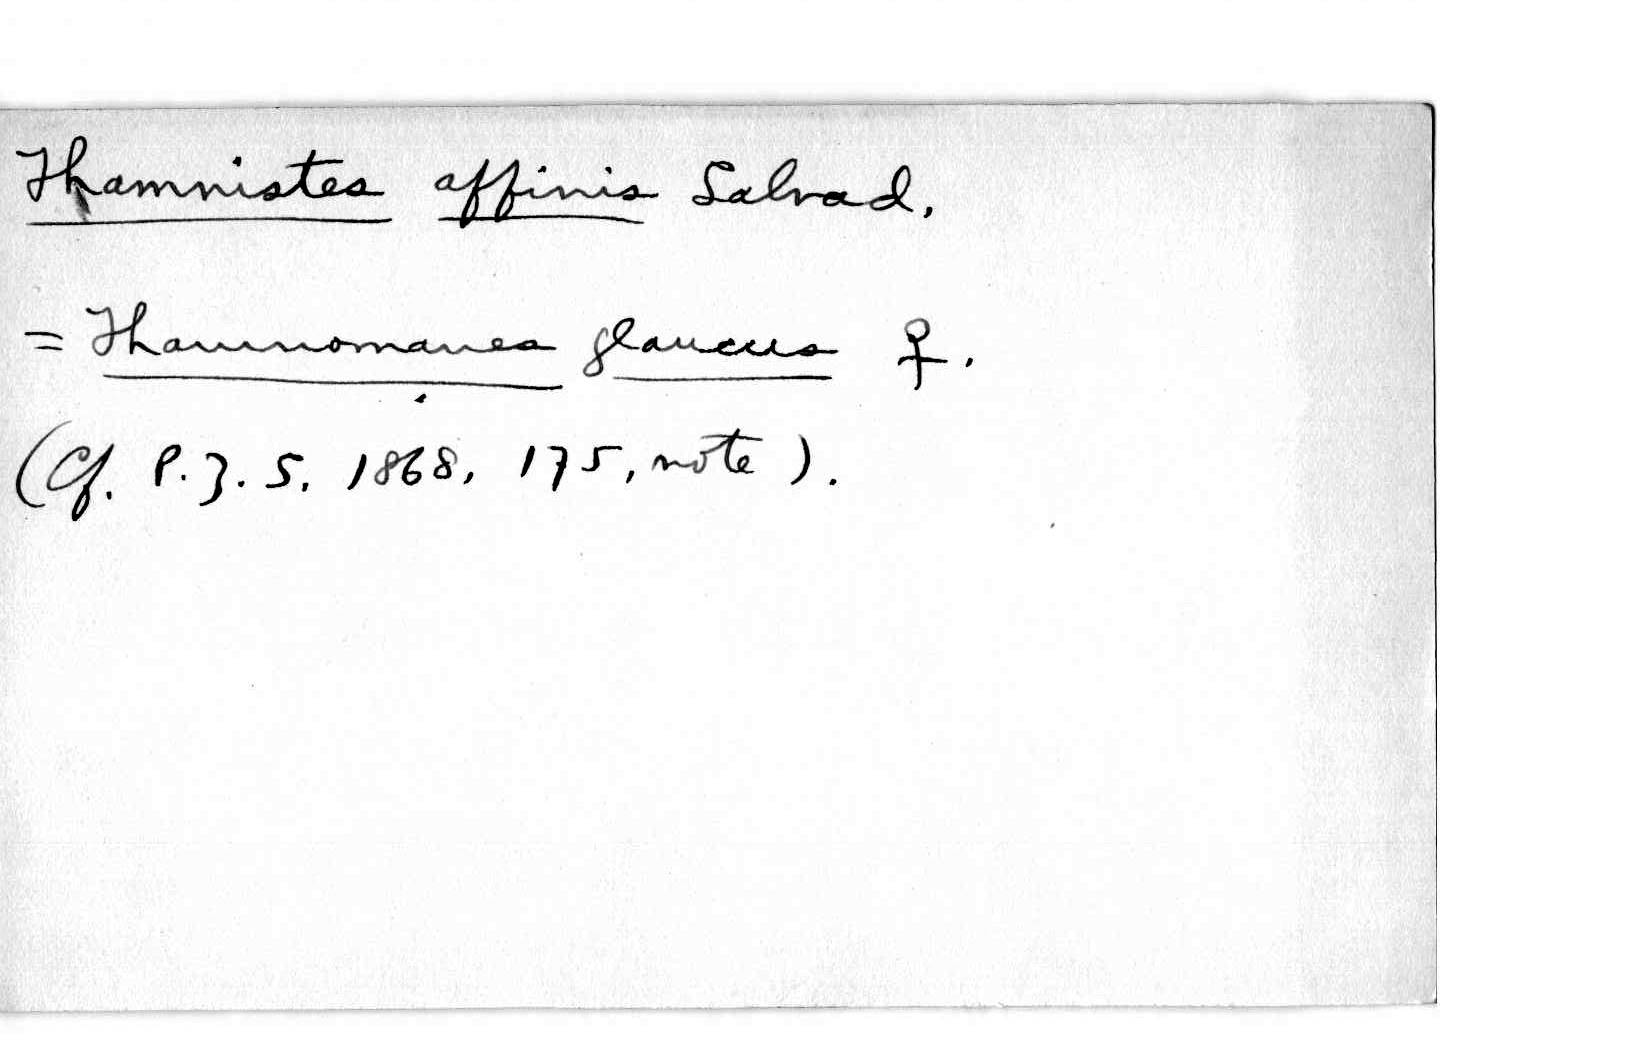 Thamnistes affinis Salvad.
= Thamnomanes glaucus ♀.
(Cf. P. Z. S. 1868, 175, note).